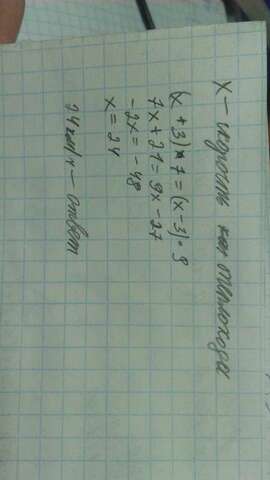 X – скорость теплохода
(x + 3) * 7 = (x – 3) · 9
7x + 21 = 9x – 27
– 2x = – 48
x = 24
24 км/ч – ответ